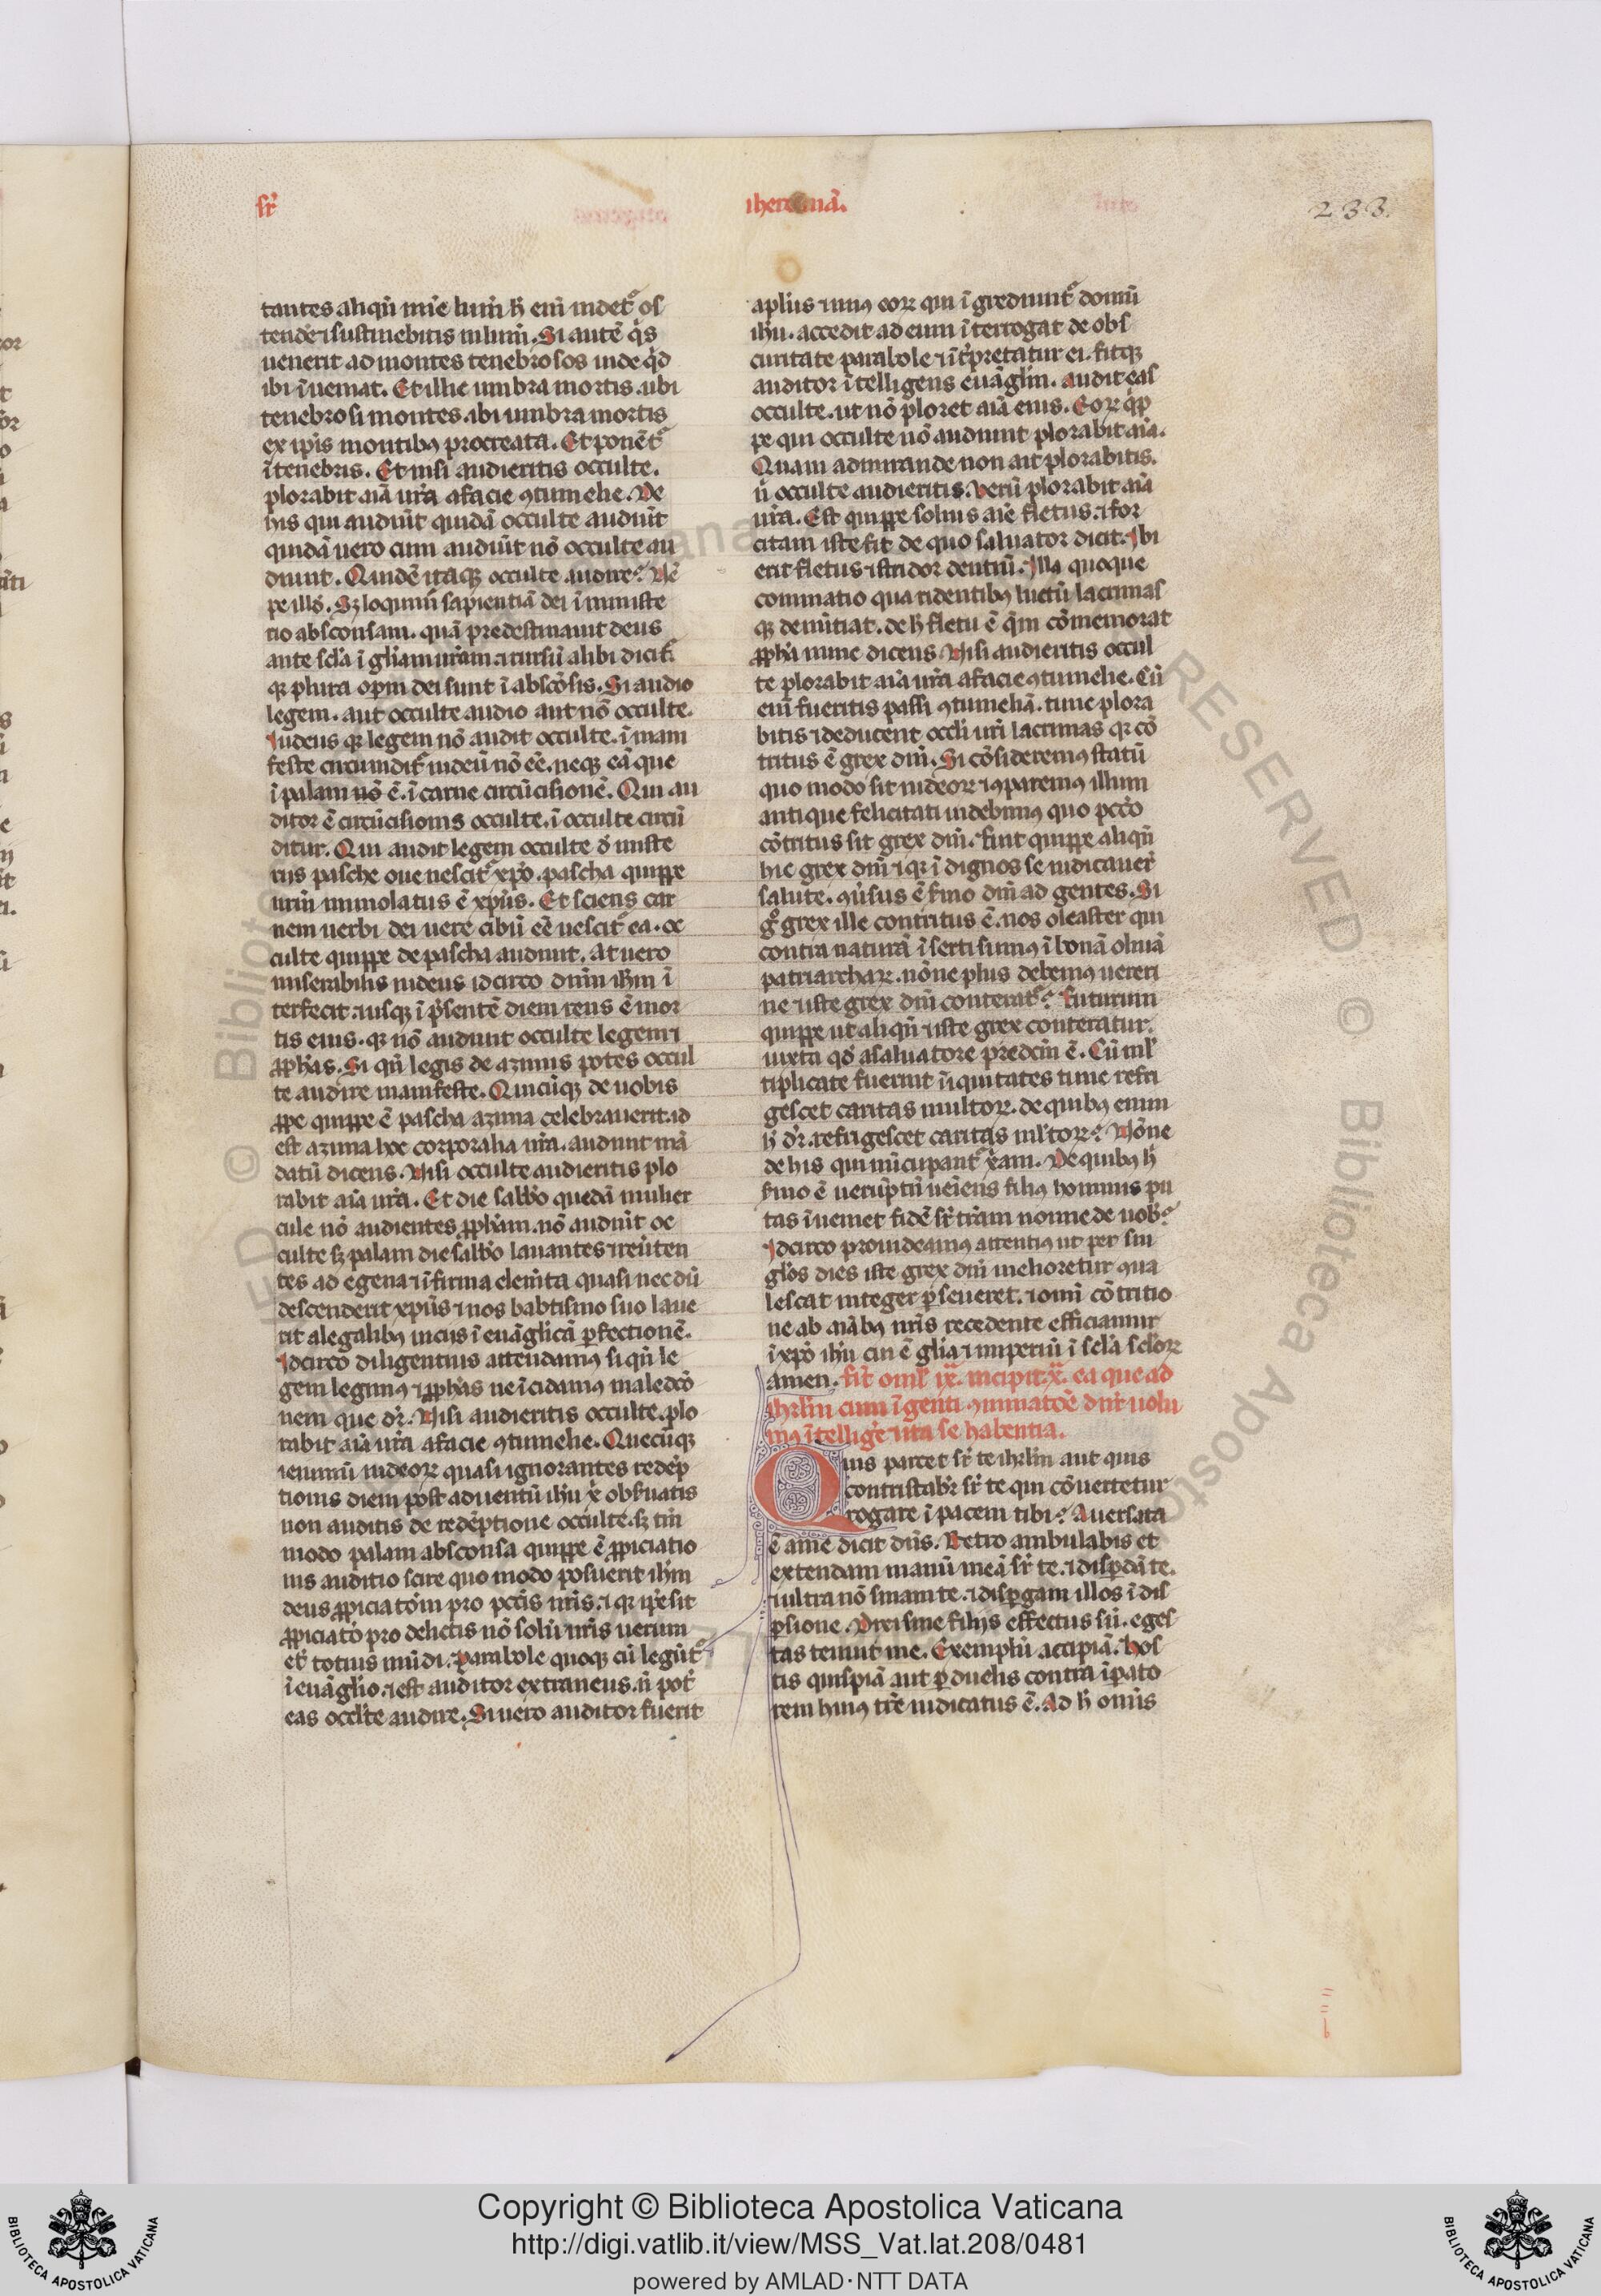 sr̄
iheremiā.
233.
tantes aliqn̄ mīe lum̄ h̄ eī uidet᷑ os
tendēr ⁊ sustinebitis ī lum̄. Si autē q̇s
uenerit ad montes tenebrosos uide qͥd
ibi īueniat. Et illic umbra mortis. ubi
tenebrosi montes. ibi umbra mortis
ex ip̄is montibꝰ procreata. Et ponēt᷑
ī tenebris. Et nisi audieritis occulte.
plorabit aīa ur̄a a facie ꝯtumelie. De
his qui audiūt quidā occulte audiūt
quidā uero cum audiūt nō occulte au
diunt. Quidē itaqꝫ occulte audire? Nē
pe illḋ. Sꝫ loquim̄ sapientiā dei ī ministe
rio absconsam. quā predestinauit deus
ante scl̄a ī gl̄iam nr̄am. ⁊ rursū alibi dicit᷑
qꝫ plura opm̄ dei sunt ī abscōsis. Si audio
legem. aut occulte audio aut nō occulte.
Iudeus qꝫ legem nō audit occulte. ī mani
feste circūcidit᷑ iudeū nō eē. neqꝫ eā que
ī palam nō ē. ī carne circūcisionē. Qui au
ditor ē circūcisionis occulte. ī occulte circū
ditur. Qui audit legem occulte ḋ miste
riis pasche oue uescit᷑ xp̄o. pascha quippe
nr̄m immolatus ē xp̄us. Et sciens car
nem uerbi dei uere cibū eē uescit᷑ ea. oc
culte quippe de pascha audiunt. At uero
miserabilis iudeus idcirco dn̄m ih̄m ī
terfecit. ⁊ usqꝫ ī p̄sentē diem reus ē mor
tis eius. qꝫ nō audiunt occulte legem ⁊
ꝓph̄as. Si qn̄ legis de azimis potes occul
te audire manifeste. Quicūqꝫ de uobis
ꝓpe quippe ē pascha azima celebrauerit. id
est azima hec corporalia ur̄a. audiunt mā
datū dicens. Nisi occulte audieritis plo
rabit aīa ur̄a. Et die sabb̄o quedā mulier
cule nō audientes ꝓph̄am. nō audiūt oc
culte sꝫ palam die sabb̄o lauantes ⁊ reuerten
tes ad egena ⁊ īfirma elem̄ta quasi nec dū
descenderit xp̄us ⁊ nos babtismo suo laue
rit a legalibꝰ uiciis ī euāglicā ꝑfectionē.
Idcirco diligentius attendamꝰ si qn̄ le
gem legimꝰ ⁊ ꝓph̄as ne īcidamꝰ maledctō
nem que dr̄. Nisi audieritis occulte. plo
rabit aīa ur̄a a facie ꝯtumelie. Quecūqꝫ
ieiuniū iudeoꝝ quasi ignorantes redēp
tionis diem post aduentū ih̄u x̄ obseruatis
non auditis de redēptione occulte. sꝫ tm̄
modo palam absconsa quippe ē ꝓpiciatio
nis auditio scire quo modo posuerit ih̄m
deus ꝓpiciatōm pro pctīs nr̄is. ⁊ qꝫ ip̄e sit
ꝓpiciatō pro delictis nō solū nr̄is uerum
et̄ totius mūdi. Parabole quoqꝫ cū legūt᷑
ī euāglio. ⁊ est auditor extraneus. n̄ pot̄
eas occl̄te audire. Si uero auditor fuerit
apl̄us ⁊ unꝰ eoꝝ qui ī grediunt᷑ domū
ih̄u. accedit ad eum īterrogat de obs
curitate parabole ⁊ īt̄pretatur ei. fitqꝫ
auditor ītelligens euāglm̄. Audit eas
occulte. ut nō ploret aīa eius. Eoꝝ qͥp
pe qui occulte nō audiunt plorabit aīa.
Quam admirande non ait plorabitis.
n̄ occulte audieritis. Verū plorabit aīa
ur̄a. Est quippe solius aīe fletus. ⁊ for
citam iste fit de quo saluator dicit. Ibi
erit fletus ⁊ stridor dentiū. Illa quoque
cominatio qua ridentibꝰ luctū lacrimas
qꝫ denūtiat. de h̄ fletu ē qm̄ cōmemorat
ꝓph̄a nunc dicens. Nisi audieritis occul
te plorabit aīa ur̄a a facie ꝯtumelie. Cū
eni fueritis passi ꝯtumeliā. tunc plora
bitis ⁊ deducent occl̄i ur̄i lacrimas qꝫ cō
tritus ē grex dn̄i. Si cōsideremꝰ statū
quo modo sit iudeoꝝ ⁊ ꝯparemꝰ illum
antique felicitati uidebimꝰ quo pctō
cōtritus sit grex dn̄i. Fuit quippe aliqn̄
hic grex dn̄i ⁊ qꝫ ī dignos se iudicauer̄
salute. ꝯuersus ē sermo dn̄i ad gentes. Si
gͦ grex ille contritus ē. nos oleaster qui
contra naturā īserti sumꝰ ī bonā oliuā
patriarchaꝝ. nōne plus debemꝰ uereri
ne ⁊ iste grex dn̄i conterat᷑? Futurum
quippe ut aliqn̄ ⁊ iste grex conteratur.
iuxta qḋ a saluatore predcm̄ ē. Cū ml̄
tiplicate fuerint īiquitates tunc refri
gescet caritas multoꝝ. de quibꝰ enim
h̄ dr̄. refrigescet caritas ml̄toꝝ? Nōne
de his qui nūcupant᷑ xp̄iani. De quibꝰ h̄
sermo ē uerūptn̄ ueīens filiꝰ hominis pu
tas īueniet fidē sr̄ tr̄am nonne de nob̄?
Idcirco prouideamꝰ attentiꝰ ut per sin
gl̄os dies iste grex dn̄i melioretur ꝯua
lescat integer ꝑseueret. ⁊ omī cōtritio
ne ab aīabꝰ nr̄is recedente efficiamur
ī xp̄o ih̄u cui ē gl̄ia ⁊ imperiū ī scl̄a scl̄oꝝ
amen. fīt oml̄ ix. incipit x. ea que ad
ih̄rlm̄ cum īgenti ꝯminatōe dn̄r uolu
mꝰ ītellige̅ ⁊ ita se habentia.
Quis parcet sr̄ te ih̄rlm̄ aut quis
contristabr̄ sr̄ te qui cōuertetur
rogare ī pacem tibi? Auersata
ē a me dicit dn̄s. Retro ambulabis et
extendam manū meā sr̄ te. ⁊ disꝑdā te.
⁊ ultra nō sinam te. ⁊ disꝑgam illos ī dis
ꝑsione. Orei sine filiis effectus sū. eges
tas tenuit me. Exemplū accipiā. Hos
tis quispiā aut ꝑduelis contra īꝑato
rem huiꝰ tr̄e iudicatus ē. Ad h̄ omīs
Copyright © Biblioteca Apostolica Vaticana
http://digi.vatlib.it/view/MSS_Vat.lat.208/0481
powered by AMLAD·NTT DATA
BIBLIOTECA APOSTOLICA VATICANA
BIBLIOTECA APOSTOLICA VATICANA